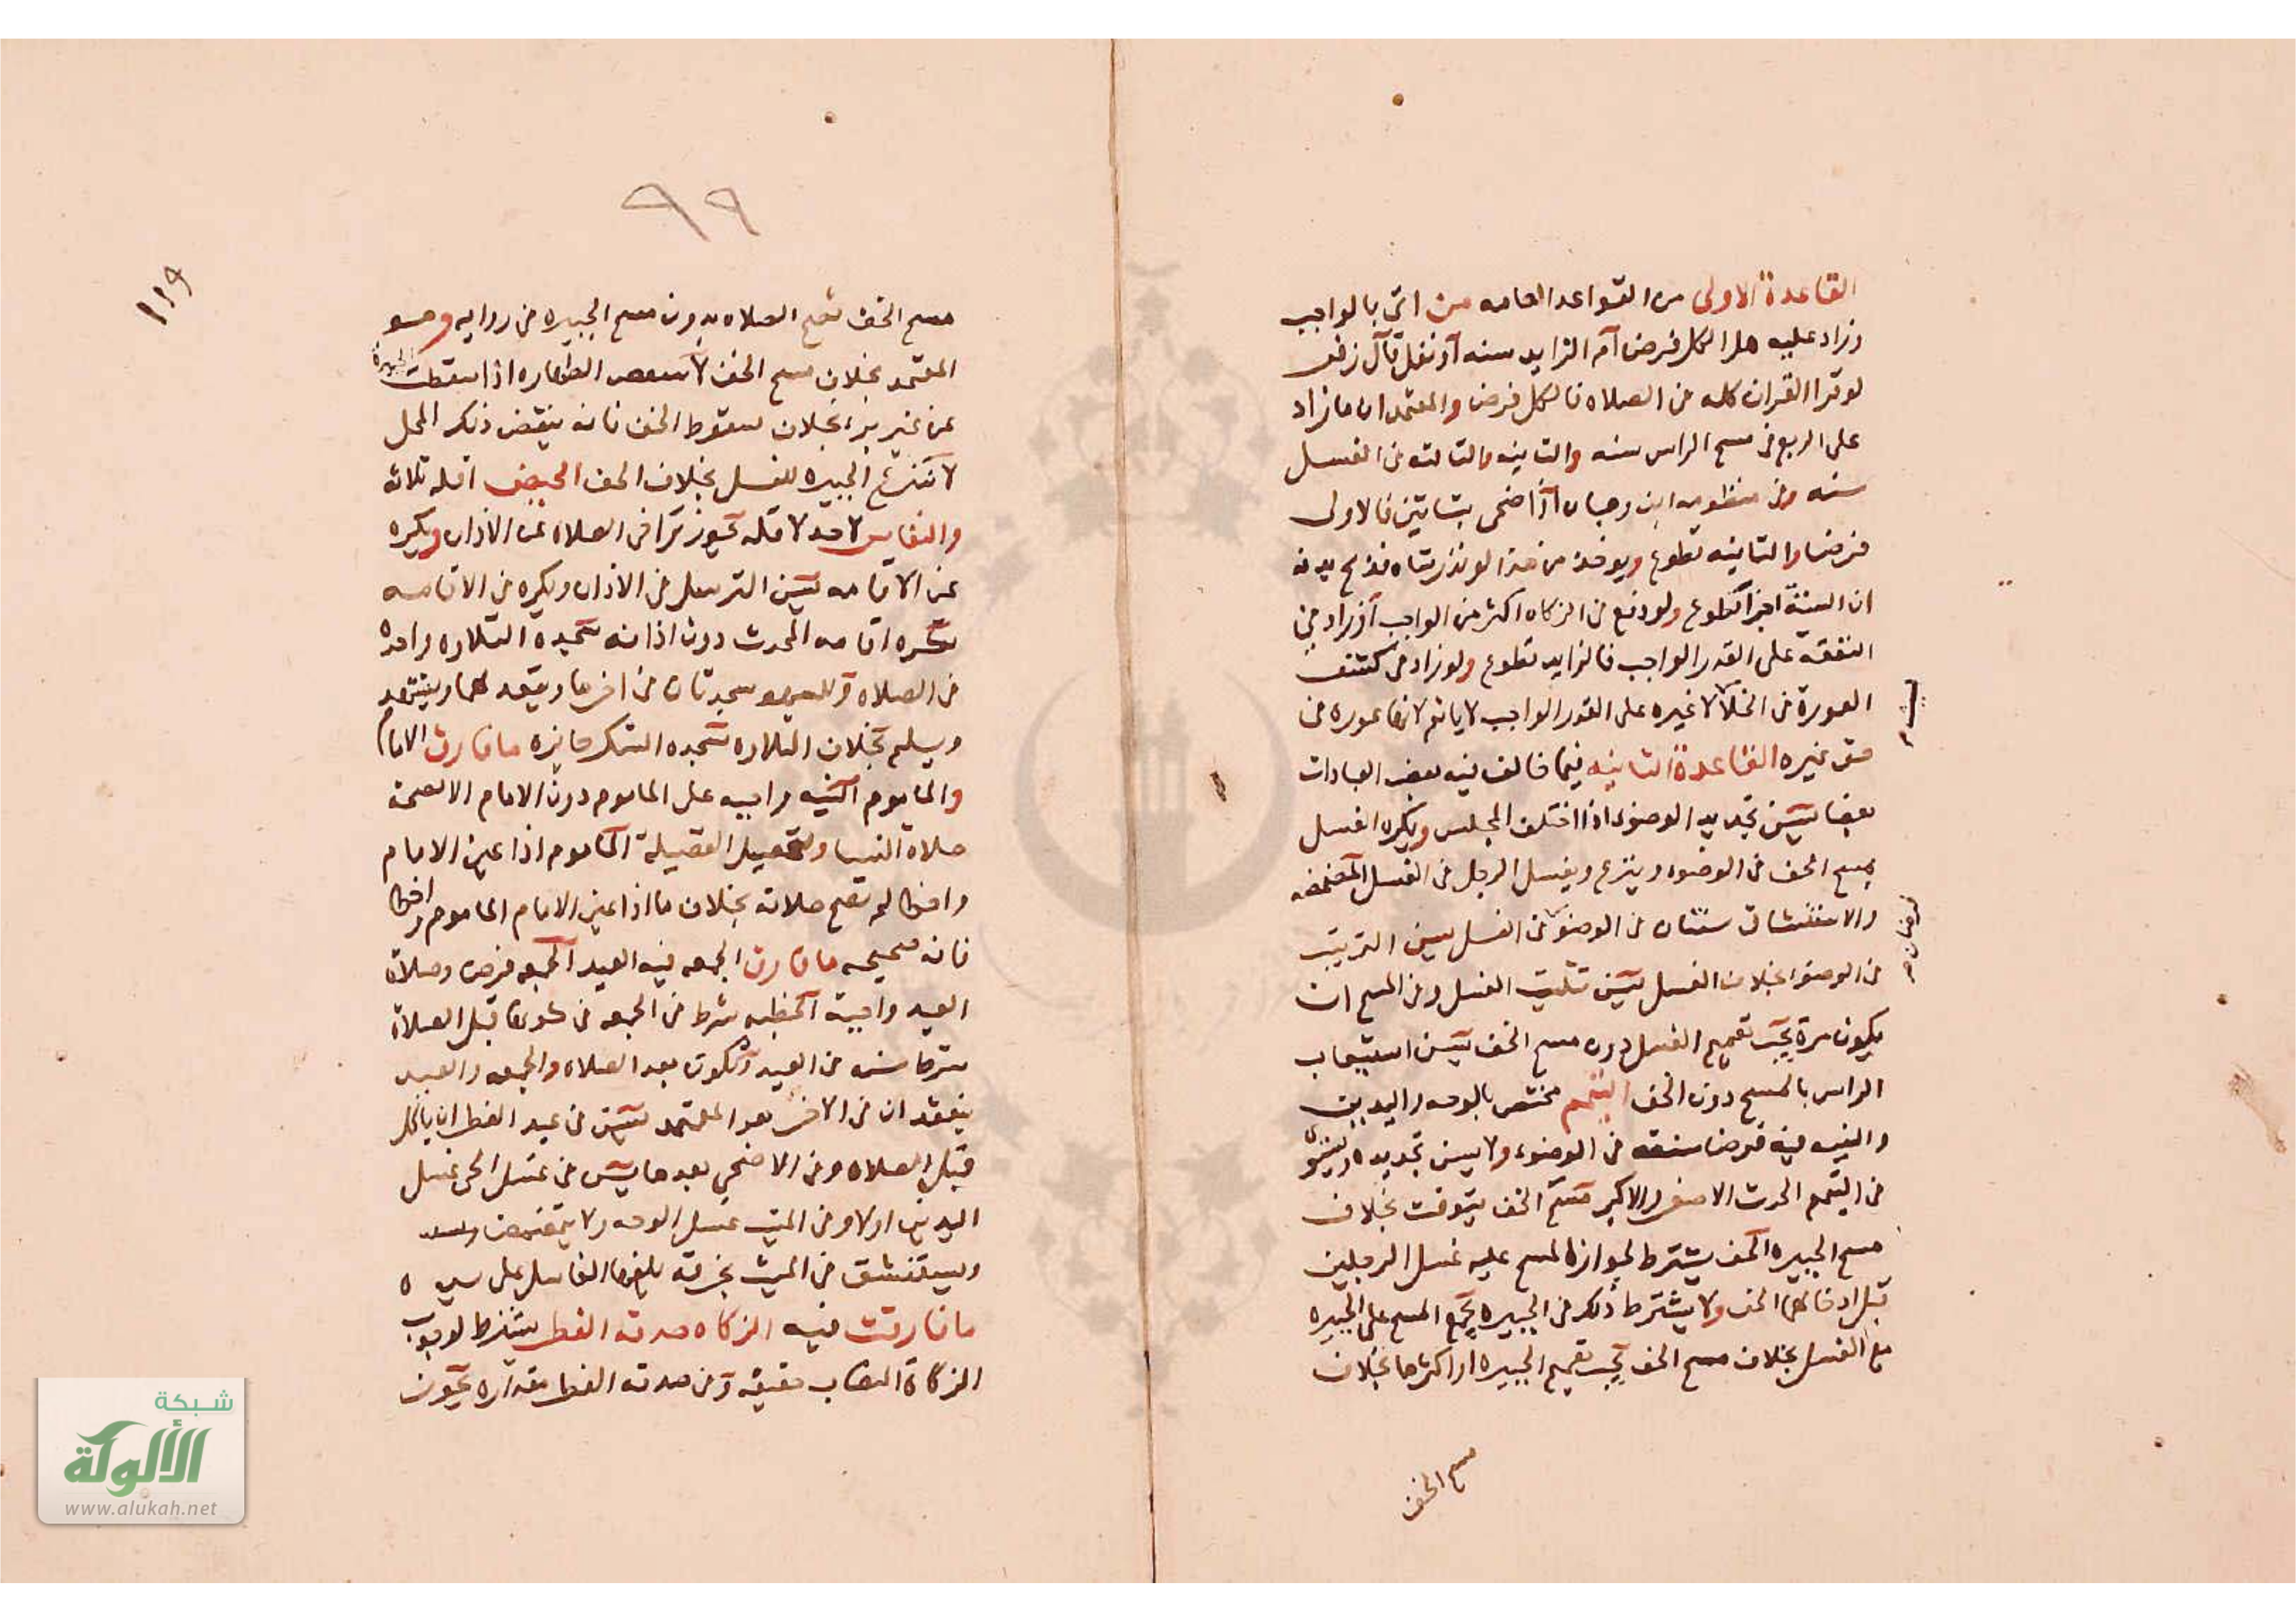 القاعدة الاولى من القواعد العامه من اتى بالواجب
وزاد عليه هل الكل فرض ام الزايد سنه او نفل قال
لو قرا القران كله فى الصلاه فالكل فرض والمعتمد ان ما زاد
على الربع فى مسح الراس سنه والثانيه والثالثه فى الغسل
سنه وفى منظومه ابن وهبان اذا ضحى بشاتين فالاولى
فرضا والثانيه تطوع ويوخذ من هذا لو نذر شاه فذبح بدنه
ان السنة اجزا تطوع ولو دفع فى الزكاه اكثر من الواجب او زاد فى
النفقة على القدر الواجب فالزايد تطوع ولو زاد فى كشف
العورة فى الخلا لا غيره على القدر الواجب لا ياثم لانها عوره فى
حق غيره القاعدة الثانيه فيما خالف فيه بعض العبادات
بعضا يسن تجديد الوضوء اذا اختلف المجلس ويكره الغسل
يمسح الخف فى الوضوء وينزع ويغسل الرجل فى الغسل المضمضه
والاستنشاق سنتان فى الوضو فى الغسل يسن الترتيب
فرضان صح
فى الوضوء بخلاف الغسل يسن تثليث الغسل وفى المسح ان
يكون مرة يجب تعميم الغسل دون مسح الخف يسن استيعاب
الراس بالمسح دون الخف التيمم مختص بالوجه واليدين
والنيه فيه فرضا سنه فى الوضوء ولا يسن تجديده ويستوى
فى التيمم الحدث الاصغر والاكبر مسح الخف يتوقت بخلاف
مسح الجبيره الخف يشترط لجواز المسح عليه غسل الرجلين
قبل ادخالهما الخف ولا يشترط ذلك فى الجبيره يجمع المسح على الجبيره
مع الغسل بخلاف مسح الخف يجب تعميم الجبيره او اكثرها بخلاف
مسح الخف
٩٩
١١٩
مسح الخف تصح الصلاه بدون مسح الجبيره فى روايه وهو
المعتمد بخلاف مسح الخف لا تنتقض الطهاره اذا سقطت الجبيرة
عن غير برء بخلاف سقوط الخف فانه ينقض ذلك المحل
لا تنزع الجبيره للغسل بخلاف الخف الحيض اقله ثلاثه
والنفاس لا حد لاقله يجوز تراخى الصلاه عن الاذان ويكره
عن الاقامه يسن الترسل فى الاذان ويكره فى الاقامه
تكره اقامه المحدث دون اذانه سجده التلاوه واحده
فى الصلاه وللسهو سجدتان فى اخرها ويقعد لهما ويتشهد
ويسلم بخلاف التلاوه سجده الشكر جايزه ما فارق الامام
والماموم النيه واجبه على الماموم دون الامام الا لصحة
صلاة النسا ولتحصيل الفضيلة الماموم اذا عين الامام
واخطا لم تصح صلاته بخلاف ما اذا عين الامام الماموم واخطا
فانه صحيحه ما فارق الجمعه فيه العيد الجمعه فرض وصلاة
العيد واجبة الخطبه شرط فى الجمعه فى كونها قبل الصلاة
سنه فى العيد وتكون بعد الصلاه والجمعه والعيد
ان فى المعتمد يسن فى عيد الفطر ان ياكل
قبل الصلاه وفى الاضحى بعدها يسن فى غسل الحى غسل
اليدين اولا وفى الميت غسل الوجه ولا يتمضمض
ويستنشق فى الميت بخرقه يلفها الغاسل على
ما فارقت فيه الزكاه صدقه الفطر يشترط لوجوب
الزكاة النصاب حقيقه وفى صدقه الفطر مقداره يجوز
شبكة
الألوكة
www.alukah.net